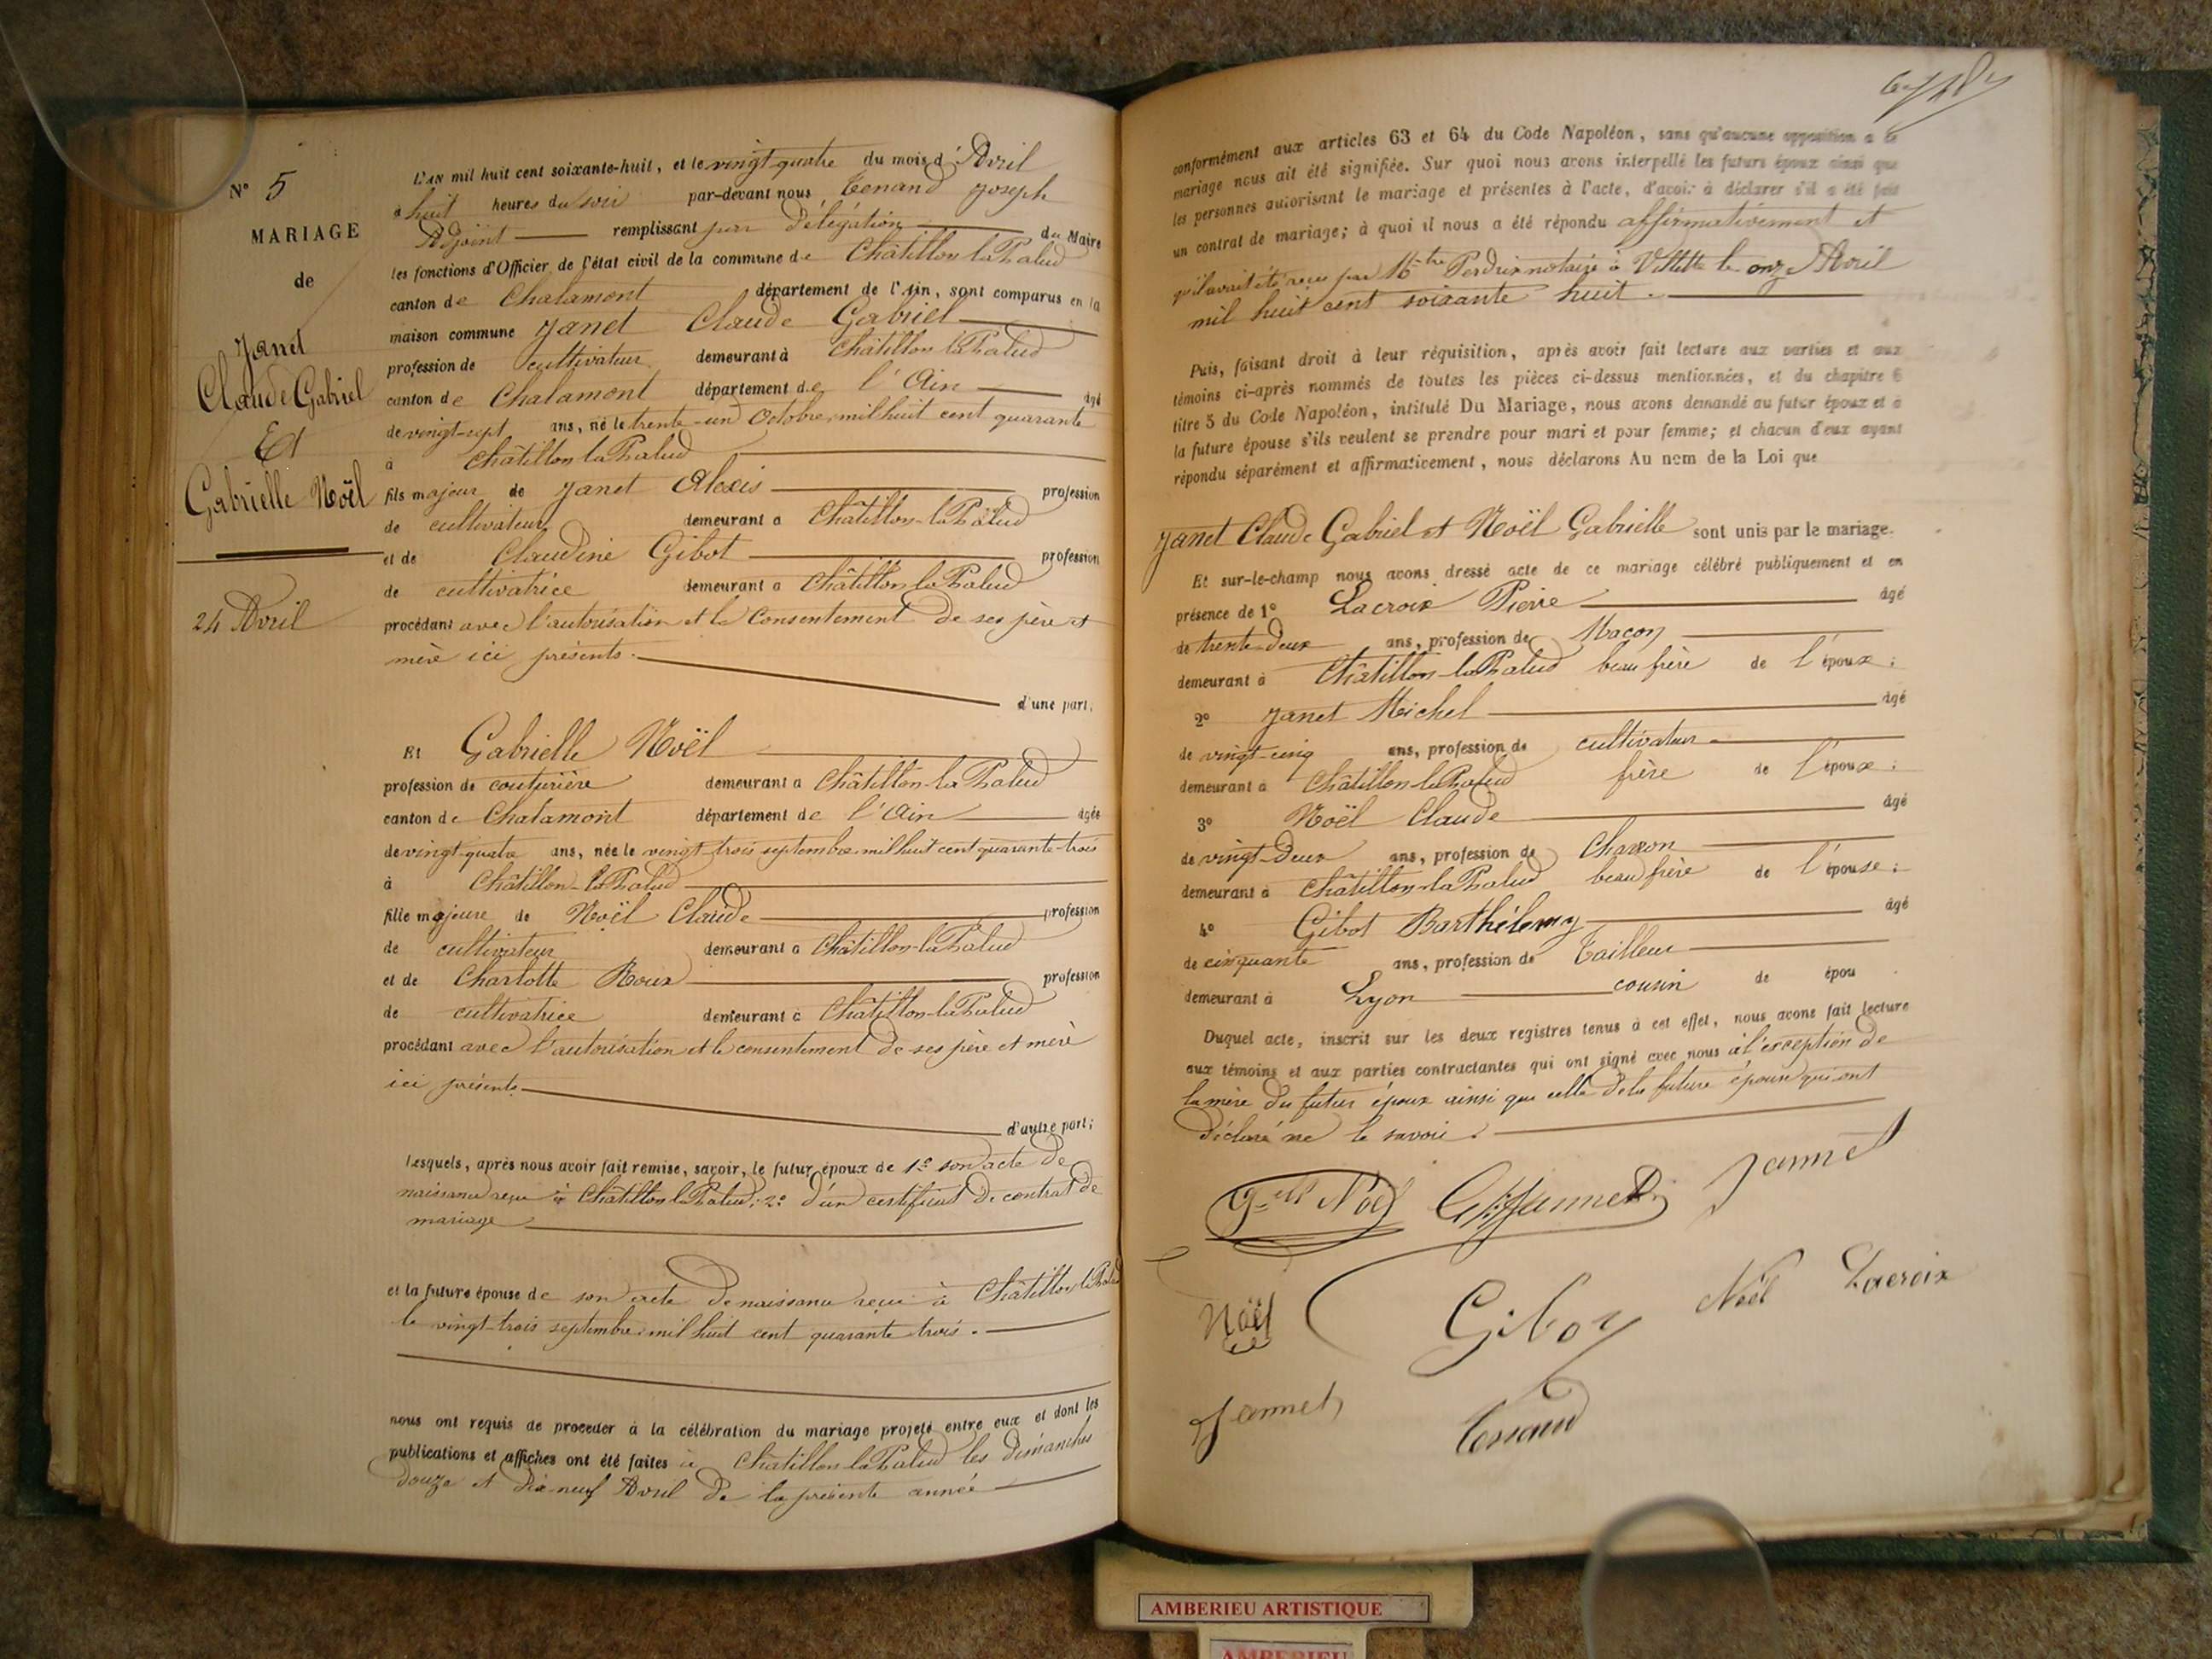 N° 5
MARIAGE
de
Janet
Claude Gabriel
Et
Gabrielle Noël
24 Avril
L'AN mil huit cent soixante-huit, et le vingt quatre du mois d' Avril
à huit heures du soir par-devant nous Tenand Joseph
Adjoint remplissant par délégation du Maire
les fonctions d'Officier de l'état civil de la commune de Châtillon la Palud
canton de Chalamont département de l'Ain, sont comparus en la
maison commune Janet Claude Gabriel
profession de cultivateur demeurant à Châtillon la Palud
canton de Chalamont département de l'Ain âgé
de vingt-sept ans, né le trente-un Octobre mil huit cent quarante
à Châtillon la Palud
fils majeur de Janet Alexis profession
de cultivateur demeurant à Châtillon-la Palud
et de Claudine Gibot profession
de cultivatrice demeurant à Châtillon la Palud
procédant avec l'autorisation et le consentement de ses père et
mère ici présents.
d'une part;
Et Gabrielle Noël
profession de couturière demeurant à Châtillon-la Palud
canton de Chalamont département de l'Ain âgée
de vingt-quatre ans, née le vingt-trois septembre mil huit cent quarante-trois
à Châtillon-la Palud
fille majeure de Noël Claude profession
de cultivateur demeurant à Châtillon-la Palud
et de Charlotte Roux profession
de cultivatrice demeurant à Châtillon-la Palud
procédant avec l'autorisation et le consentement de ses père et mère
ici présents
d'autre part;
lesquels, après nous avoir fait remise, savoir, le futur époux de 1° son acte de
naissance reçu à Châtillon la Palud; 2° d'un certificat de contrat de
mariage
et la future épouse de son acte de naissance reçu à Châtillon la Palud
le vingt-trois septembre mil huit cent quarante trois.
nous ont requis de procéder à la célébration du mariage projeté entre eux et dont les
publications et affiches ont été faites à Châtillon la Palud les dimanches
douze et dix-neuf Avril de la présente année
conformément aux articles 63 et 64 du Code Napoléon, sans qu'aucune opposition a ce
mariage nous ait été signifiée. Sur quoi nous avons interpellé les futurs époux ainsi que
les personnes autorisant le mariage et présentes à l'acte, d'avoir à déclarer s'il a été fait
un contrat de mariage; à quoi il nous a été répondu affirmativement et
qu'il avait été reçu par Mtre Perdrix notaire à le onze Avril
mil huit cent soixante huit.
Puis, faisant droit à leur réquisition, après avoir fait lecture aux parties et aux
témoins ci-après nommés de toutes les pièces ci-dessus mentionnées, et du chapitre 6
titre 5 du Code Napoléon, intitulé Du Mariage, nous avons demandé au futur époux et à
la future épouse s'ils veulent se prendre pour mari et pour femme; et chacun d'eux ayant
répondu séparément et affirmativement, nous déclarons Au nom de la Loi que
Janet Claude Gabriel et Noël Gabrielle sont unis par le mariage.
Et sur-le-champ nous avons dressé acte de ce mariage célébré publiquement et en
présence de 1° Lacroix Pierre âgé
de trente-deux ans, profession de Maçon
demeurant à Châtillon-la Palud beau frère de l'époux;
2° Janet Michel âgé
de vingt-cinq ans, profession de cultivateur
demeurant à Châtillon-la Palud frère de l'époux;
3° Noël Claude âgé
de vingt-deux ans, profession de Charron
demeurant à Châtillon-la Palud beau frère de l'épouse;
4° Gibot Barthélemy âgé
de cinquante ans, profession de Tailleur
demeurant à Lyon cousin de épou
Duquel acte, inscrit sur les deux registres tenus à cet effet, nous avons fait lecture
aux témoins et aux parties contractantes qui ont signé avec nous à l'exception de
la mère du futur époux ainsi que celle de la future épouse qui ont
déclaré ne le savoir.
Noël Jannet
Noël Giboz Noël Lacroix
Jannet Tenand
AMBERIEU ARTISTIQUE
AMBERIEU